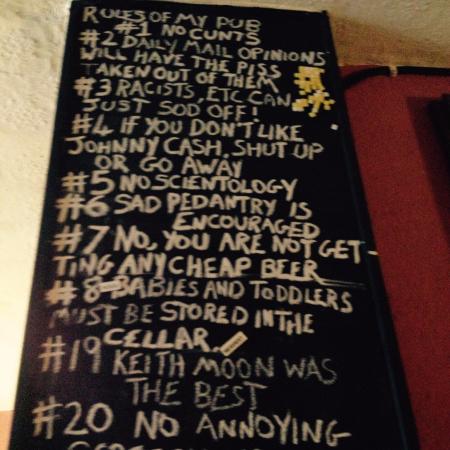 RULES OF MY PUB
#1 NO CUNTS
#2 DAILY MAIL OPINIONS
WILL HAVE THE PISS
TAKEN OUT OF THEM
#3 RACISTS, ETC CAN
JUST SOD OFF!
#4 IF YOU DON'T LIKE
JOHNNY CASH, SHUT UP
OR GO AWAY
#5 NO SCIENTOLOGY
#6 SAD PEDANTRY IS
ENCOURAGED
#7 NO, YOU ARE NOT GET-
TING ANY CHEAP BEER
#8 BABIES AND TODDLERS
MUST BE STORED IN THE
CELLAR.
#19 KEITH MOON WAS
THE BEST
#20 NO ANNOYING